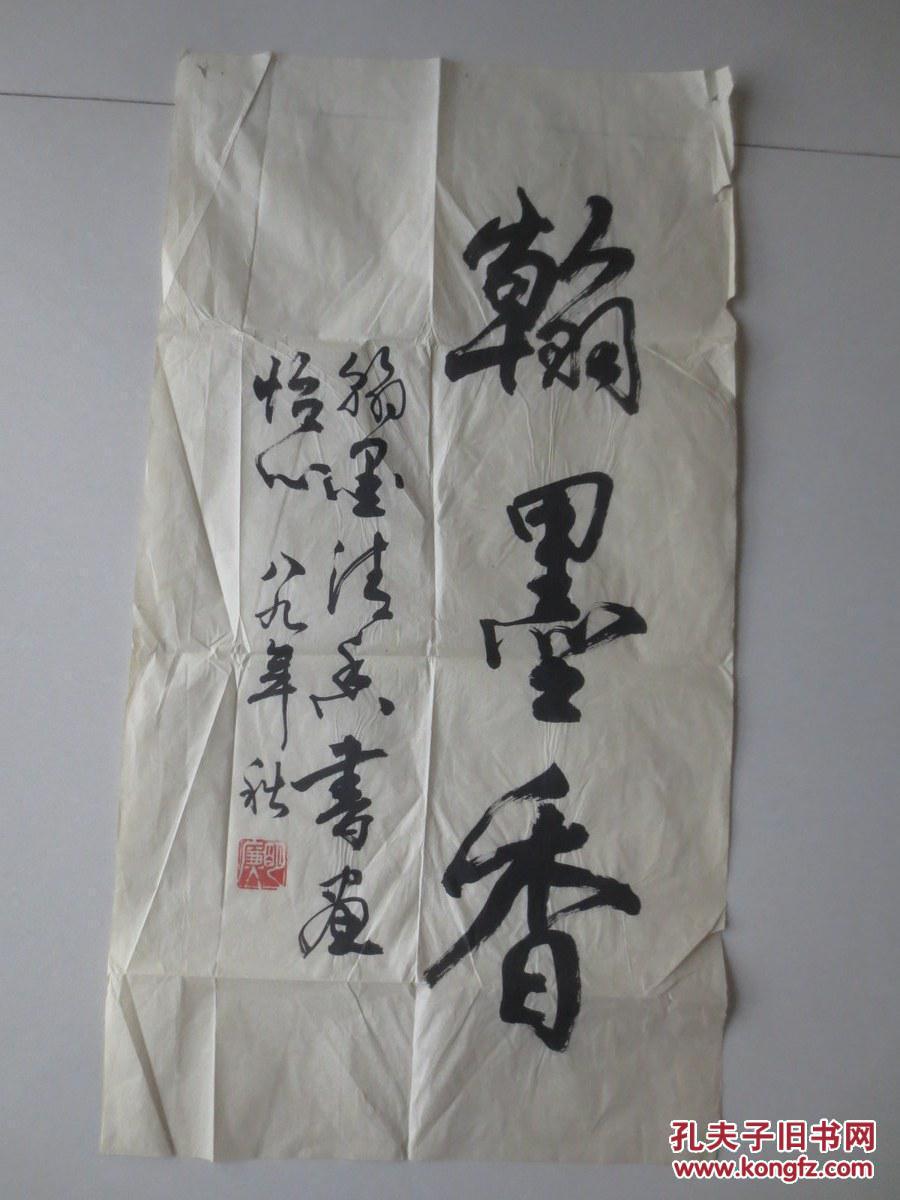 翰墨香
翰墨清香書画
怡心 八九年秋
孔夫子旧书网
www.kongfz.com